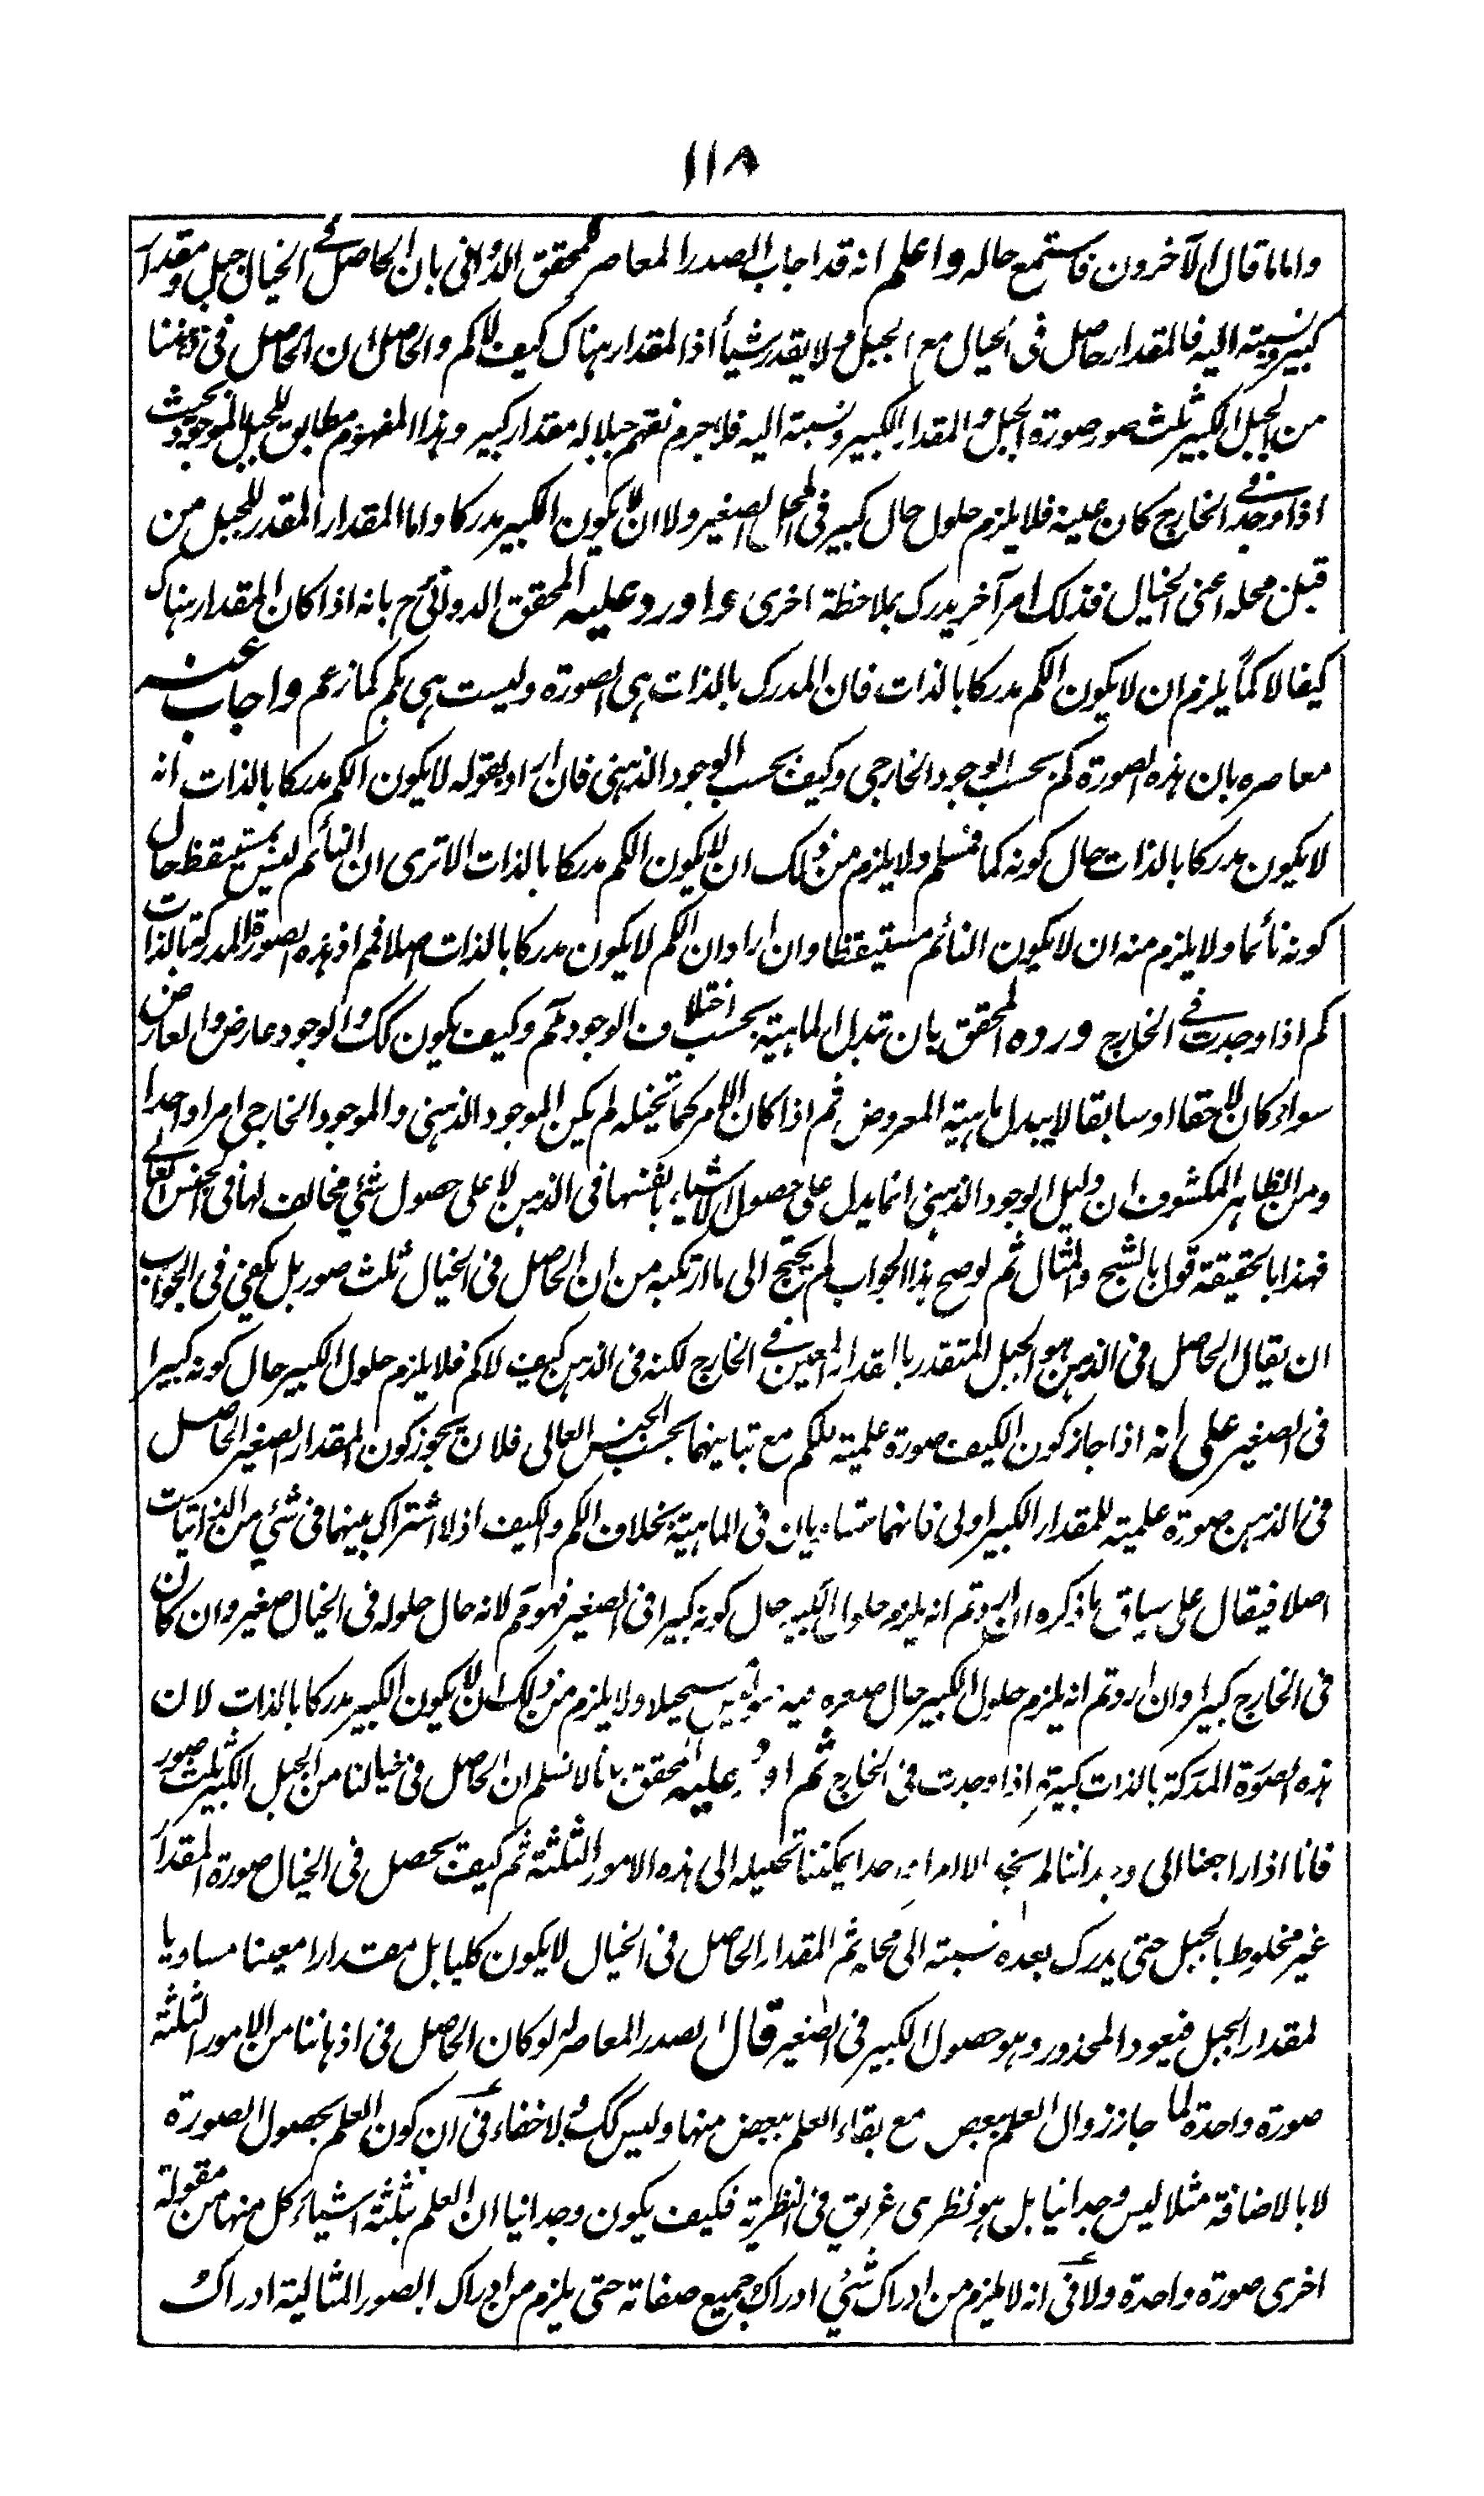 ١١٨
واما ما قال الآخرون فاستمع حاله واعلم انه قد اجاب الصدر المعاصر للمحقق الدوانى بان الحاصل فى الخيال جبل ومقدار
كبير ونسبته اليه فالمقدار حاصل فى الخيال مع الجبل ولا يقدر شيأ اذ المقدار هناك كيف لا كم والحاصل ان الحاصل فى ذهننا
من الجبل الكبير ثلث صور صورة الجبل والمقدار الكبير ونسبته اليه فلا جرم نفهم جبلا له مقدار كبير وهذا المفهوم مطابق للجبل الموجود بحيث
اذا وجد فى الخارج كان عينه فلا يلزم حلول حال كبير فى المحل الصغير ولا ان لا يكون الكبير مدركا واما المقدار المقدر للجبل من
قبل محله اعنى الخيال فذلك امر آخر يدرك بملاحظة اخرى واورد عليه المحقق الدوانى ح بانه اذا كان المقدار هناك
كيفا لا كماً يلزم ان لا يكون الكم مدركا بالذات فان المدرك بالذات هى الصورة وليست هى بكم كما زعم واجاب عنه
معاصره بان هذه الصورة كم بحسب الوجود الخارجى وكيف بحسب الوجود الذهنى فان اراد بقوله لا يكون الكم مدركا بالذات انه
لا يكون مدركا بالذات حال كونه كما فمسلم ولا يلزم من ذلك ان لا يكون الكم مدركا بالذات الا ترى ان النائم ليس بمستيقظ حال
كونه نائما ولا يلزم منه ان لا يكون النائم مستيقظا وان اراد ان الكم لا يكون مدركا بالذات اصلا فمم اذ هذه الصورة المدركة بالذات
كم اذا وجدت فى الخارج ورده المحقق بان تبدل الماهية بحسب اختلاف الوجود مم وكيف يكون كك والوجود عارض والعارض
سواء كان لاحقا او سابقا لا يبدل ماهية المعروض ثم اذا كان الامر كما تخيله لم يكن الموجود الذهنى والموجود الخارجى امرا واحدا
ومن الظاهر المكشوف ان دليل الوجود الذهنى انما يدل على حصول الاشياء بانفسها فى الذهن لا على حصول شئ مخالف لها فى الجنس العالى
فهذا بالحقيقة قول بالشبح والمثال ثم لو صح هذا الجواب لم يحتج الى ما ارتكبه من ان الحاصل فى الخيال ثلث صور بل يكفى فى الجواب
ان يقال الحاصل فى الذهن هو الجبل المتقدر بالمقدار المعين فى الخارج لكنه فى الذهن كيف لا كم فلا يلزم حلول الكبير حال كونه كبيرا
فى الصغير على انه اذا جاز كون الكيف صورة علمية للكم مع تباينهما بحسب الجنس العالى فلان يجوز كون المقدار الصغير الحاصل
فى الذهن صورة علمية للمقدار الكبير اولى فانهما متساويان فى الماهية بخلاف الكم والكيف اذ لا اشتراك بينهما فى شئ من الذاتيات
اصلا فيقال على سياق ما ذكره ان اردتم انه يلزم حلول الكبير حال كونه كبيرا فى الصغير فهو مم لانه حال حلوله فى الخيال صغير وان كان
فى الخارج كبيرا وان اردتم انه يلزم حلول الكبير حال صغره فيه فليس مستحيلا ولا يلزم من ذلك ان لا يكون الكبير مدركا بالذات لان
هذه الصورة المدركة بالذات كبيرة اذا وجدت فى الخارج ثم اورد عليه المحقق بانا لا نسلم ان الحاصل فى خيالنا من الجبل الكبير ثلث صور
فانا اذا راجعنا الى وجداننا لم نجد الا امرا واحدا يمكننا تحليله الى هذه الامور الثلثة ثم كيف يحصل فى الخيال صورة المقدار
غير مخلوط بالجبل حتى يدرك بعده نسبته الى محله ثم المقدار الحاصل فى الخيال لا يكون كليا بل مقدارا معينا مساويا
لمقدار الجبل فيعود المحذور وهو حصول الكبير فى الصغير قال الصدر المعاصر له لو كان الحاصل فى اذهاننا من الامور الثلثة
صورة واحدة لما جاز زوال العلم ببعض مع بقاء العلم ببعض منها وليس كك ولا خفاء فى ان كون العلم بحصول الصورة
لا بالاضافة مثلا ليس وجدانيا بل هو نظرى غريق فى النظرية فكيف يكون وجدانيا ان العلم بثلثة اشياء كل منها من مقولة
اخرى صورة واحدة ولا فى انه لا يلزم من ادراك شئ ادراك جميع صفاته حتى يلزم من ادراك الصور المثالية ادراك